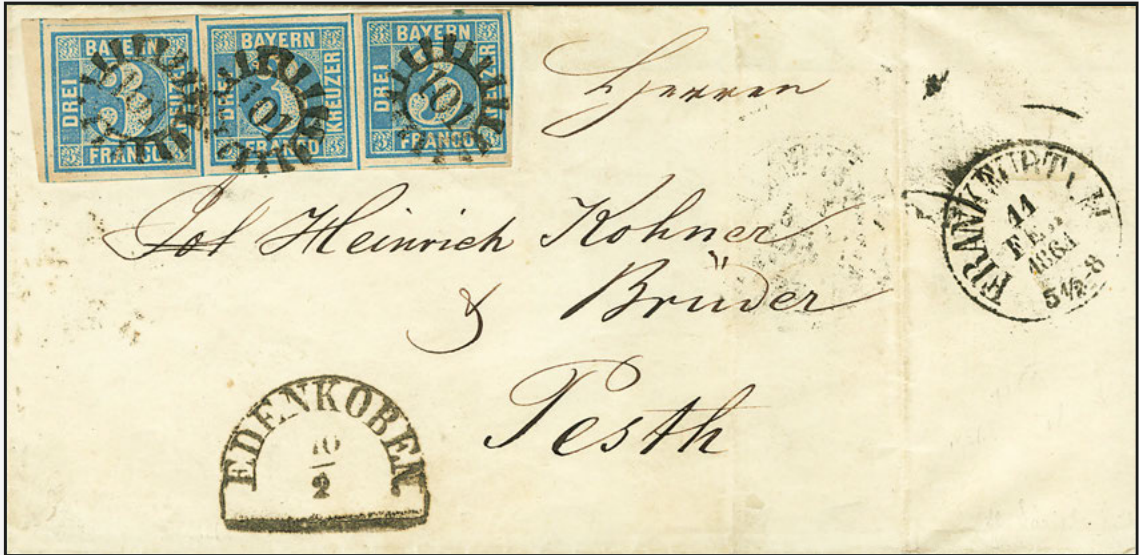 BAYERN
DREI
3
KREUZER
FRANCO
101
BAYERN
DREI
3
KREUZER
FRANCO
101
BAYERN
DREI
3
KREUZER
FRANCO
101
Herren
Jos Heinrich Kohner
& Brüder
Pesth
FRANKFURT
11
FEB
1861
5½-8
EDENKOBEN
10
2